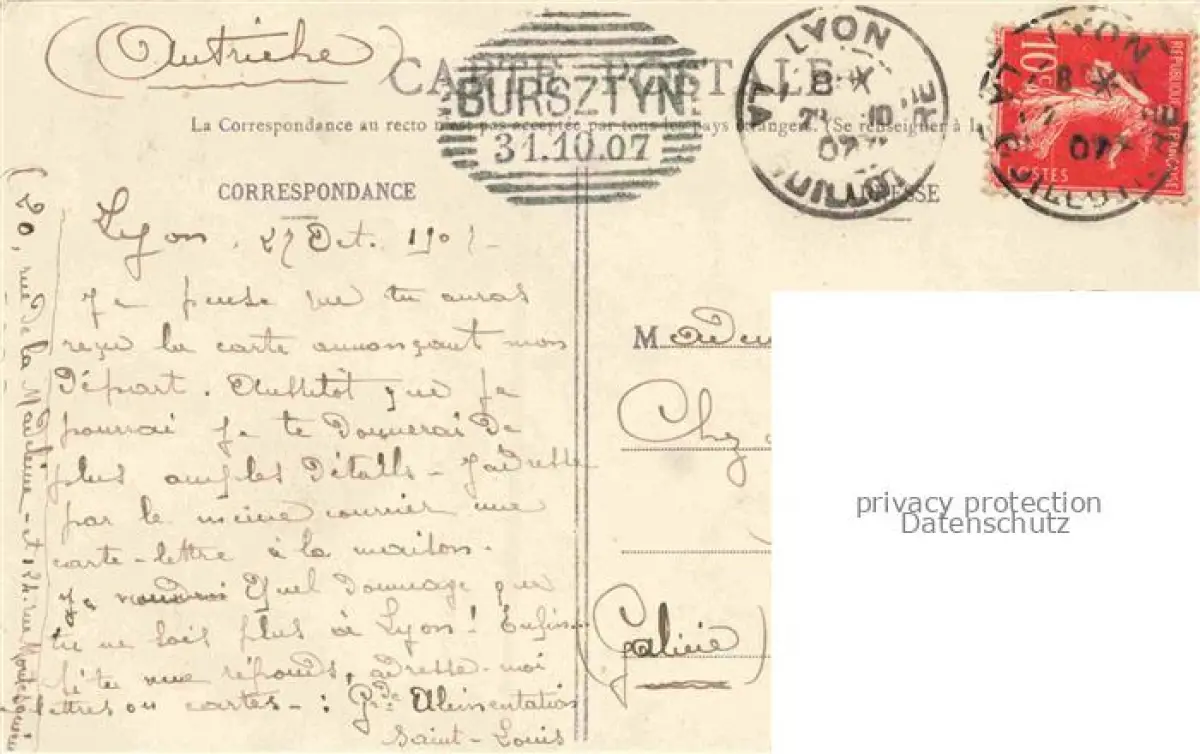 (Autriche)
CARTE POSTALE
BURSZTYN
31.10.07
LYON
LA GUILLOTIERE
8
07
LYON
LA GUILLOTIERE
8
07
10c
REPUBLIQUE FRANÇAISE
POSTES
La Correspondance au recto n'est pas acceptée par tous les pays étrangers. (Se renseigner à la
CORRESPONDANCE
ADRESSE
Lyon, 27 Oct. 1907
Je pense que tu auras
reçu la carte annonçant mon
Départ. Aussitôt que je
pourrai je te Donnerai De
plus amples Détails - J'adresse
par le même courrier une
carte-lettre à la maison.
Je voudrai Quel Dommage que
tu ne sois plus à Lyon! Enfin
si tu me réponds, adresse-moi
lettres ou cartes - : Gde Alimentation
Saint-Louis
(20, rue de la Madeleine - et 134 rue
Madem
Chez
(Galicie)
privacy protection
Datenschutz